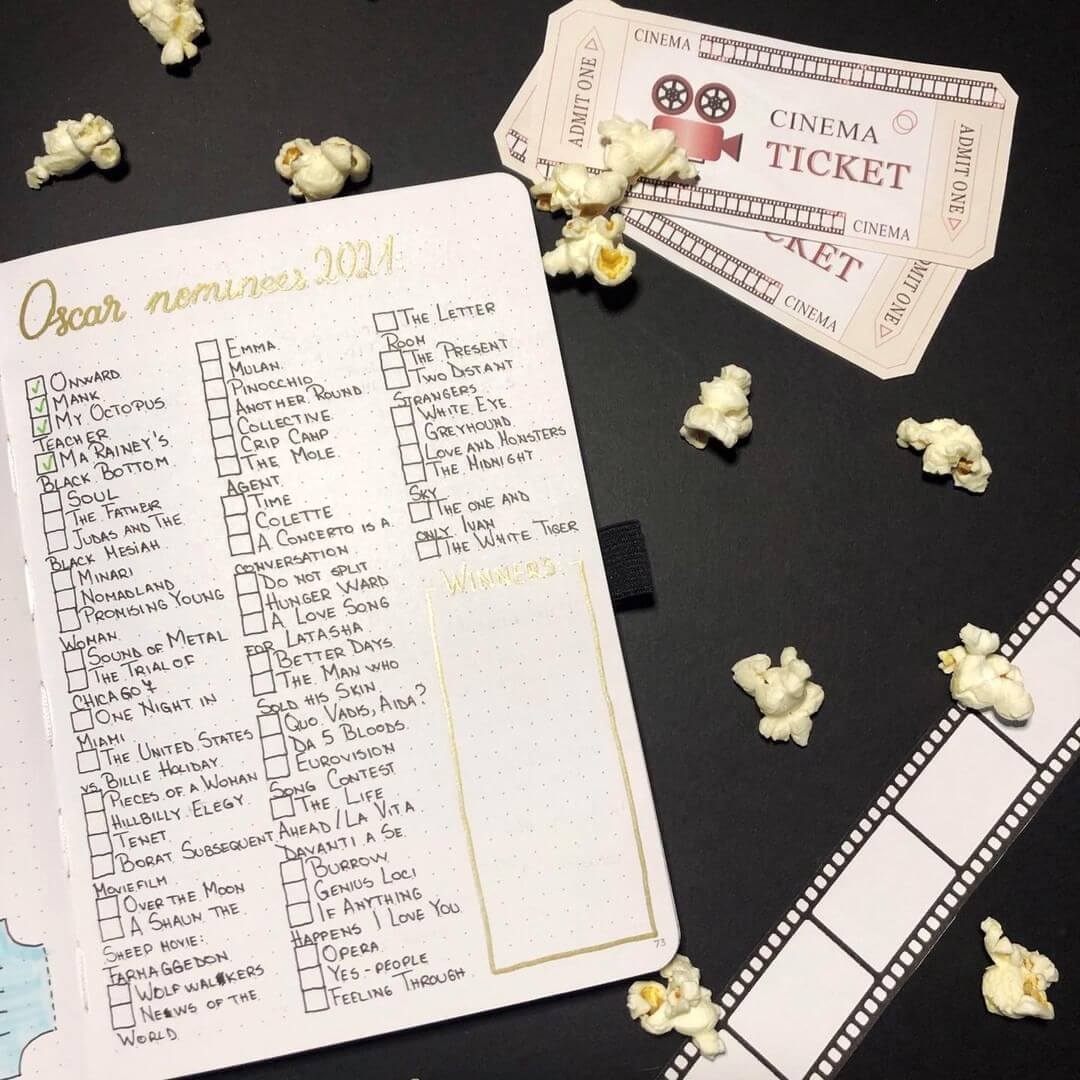 CINEMA
ADMIT ONE
CINEMA
TICKET
ADMIT ONE
CINEMA
CKET
CINEMA
DMIT ONE
Oscar nominees 2021
ONWARD
MANK
MY OCTOPUS
TEACHER
MA RAINEY'S
BLACK BOTTOM
SOUL
THE FATHER
JUDAS AND THE
BLACK MESIAH.
MINARI
NOMADLAND
PROMISING YOUNG
WOMAN.
SOUND OF METAL
THE TRIAL OF
CHICAGO 7
ONE NIGHT IN
MIAMI
THE UNITED STATES
VS. BILLIE HOLIDAY.
PIECES OF A WOMAN
HILLBILLY ELEGY.
TENET
BORAT SUBSEQUENT
MOVIEFILM
OVER THE MOON
A SHAUN THE
SHEEP MOVIE:
FARMAGGEDON
WOLFWALKERS
NEWS OF THE
WORLD
EMMA.
MULAN.
PINOCCHIO
ANOTHER ROUND
COLLECTIVE
CRIP CAMP
THE MOLE
AGENT.
TIME
COLETTE
A CONCERTO IS A
CONVERSATION
DO NOT SPLIT
HUNGER WARD
A LOVE SONG
FOR LATASHA
BETTER DAYS
THE MAN WHO
SOLD HIS SKIN.
QUO VADIS, AIDA?
DA 5 BLOODS.
EUROVISION
SONG CONTEST
THE LIFE
AHEAD/LA VITA
DAVANTI A SE.
BURROW
GENIUS LOCI
IF ANYTHING
HAPPENS I LOVE YOU
OPERA
YES-PEOPLE
FEELING THROUGH
THE LETTER
ROOM
THE PRESENT
TWO DISTANT
STRANGERS
WHITE EYE
GREYHOUND
LOVE AND MONSTERS
THE MIDNIGHT
SKY
THE ONE AND
ONLY IVAN
THE WHITE TIGER
WINNERS
73